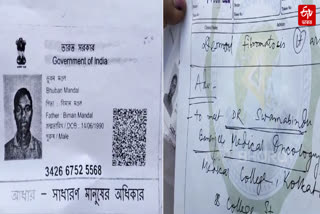 ভারত সরকার
Government of India
ভুবন মণ্ডল
Bhuban Mandal
পিতা : বিমান মণ্ডল
Father : Biman Mandal
জন্মতারিখ / DOB : 14/06/1990
পুরুষ / Male
3426 6752 5568
আধার - সাধারণ মানুষের অধিকার
fibromatosis
Adv
to meet DR Swarnabindu
Medical Oncology
Medical College, Kolkata
8 College St